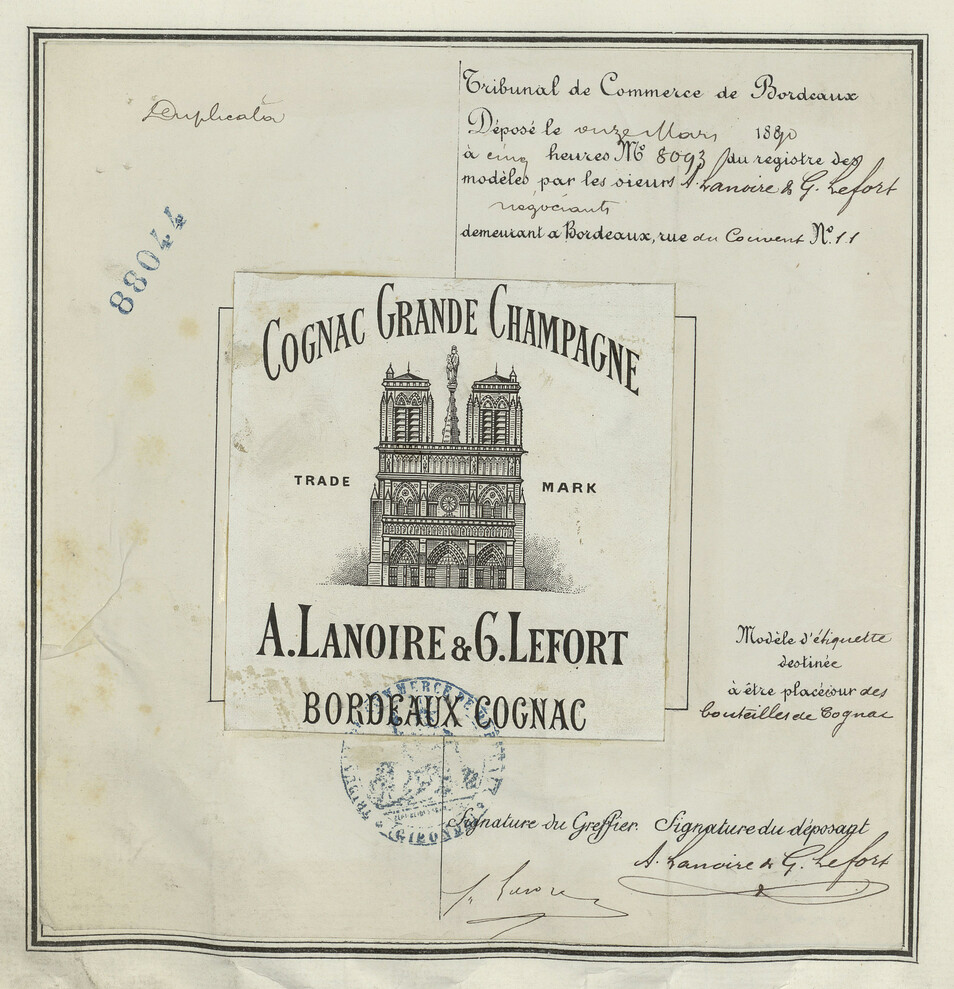 Duplicata
Tribunal de Commerce de Bordeaux
Déposé le onze Mars 1890
à cinq heures No 8093 du registre des
modèles par les sieurs A. Lanoire & G. Lefort
négociants
demeurant a Bordeaux, rue du Couvent No. 11
88044
COGNAC GRANDE CHAMPAGNE
TRADE MARK
A. LANOIRE & G. LEFORT
BORDEAUX COGNAC
Modèle d'étiquette
destinée
à être placée sur des
bouteilles de Cognac
TRIBUNAL DE COMMERCE DE BORDEAUX
GIRONDE
Signature du Greffier. Signature du déposant
A. Lanoire & G. Lefort